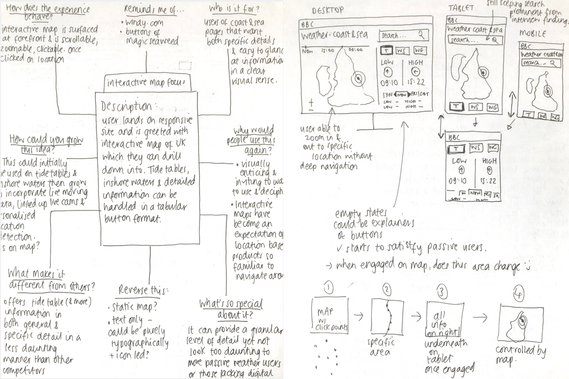 How does the experience behave?
interactive map is surfaced
at forefront & is scrollable,
zoomable, clickable. once
clicked on location
Reminds me of...
• windy.com
• buttons of
magicseaweed
Who is it for?
users of coast & sea
pages that want
both specific details
& easy to glance
at information
in a clear
visual sense.
interactive map focus
Description:
user lands on responsive
site and is greeted with
interactive map of UK
which they can drill
down into. Tide tables,
inshore waters & detailed
information can be
handled in a tabular
button format.
How could you grow
this idea?
This could initially
be used on tide tables &
inshore waters then grow
incorporate live moving
area, linked up live cams &
personalised
location
detection.
on map?
Why would
people use this
again?
• visually
enticing &
inviting to use
to use & decipher
• Interactive
maps have
become an
expectation of
location base
products so
familiar to
navigate around
What makes it
different from others?
offers tide table (& more)
information in
both general &
specific detail in a
less daunting
manner than other
competitors
Reverse this:
• static map?
• text only -
could be purely
typographically
+ icon led?
What's so special
about it?
It can provide a granular
level of detail yet not
look too daunting to
more passive weather users
or those lacking digital
DESKTOP
BBC
weather - coast & sea
search...
T
LOW
HIGH
09:10
15:22
user able to
zoom in &
out to specific
location without
deep navigation
empty states
could be explainers
of buttons
✓ starts to satisfy passive users.
→ when engaged on map, does this area change
TABLET
still keeping search
prominent from
interview findings
BBC
weather coast & sea
search...
T
BBC
LOW
HIGH
09:10
15:22
MOBILE
BBC
weather coast &
search...
T
1
MAP
w/
click points
2
specific
area
3
all
info
on right
underneath
on
tablet
once engaged
4
controlled by
map.